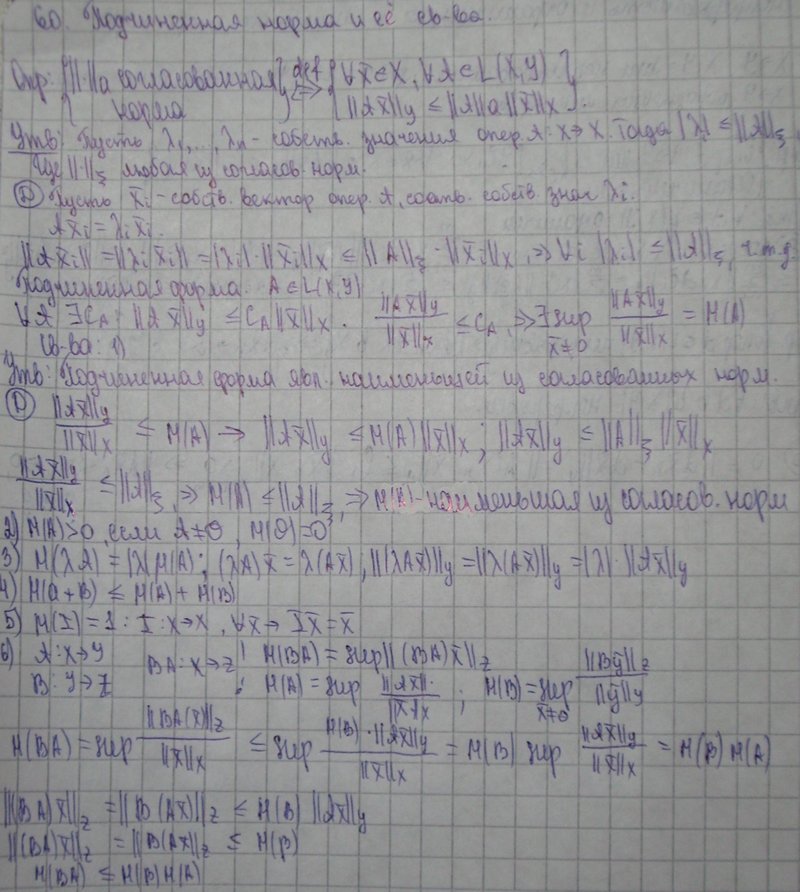 60. Подчиненная норма и её св-ва.
Опр: {||·||a согласованная норма} def⟺ {∀x̄∈X, ∀A∈L(X,Y) ||Ax̄||y ≤ ||A||a ||x̄||x}.
Утв: Пусть λ1,..., λn - собств. значения опер. A: X→X. Тогда |λi| ≤ ||A||ξ,
где ||·||ξ любая из согласов. норм.
Д Пусть x̄i - собств. вектор опер. A, соотв. собств. знач. λi.
Ax̄i = λi x̄i.
||Ax̄i|| = ||λi x̄i|| = |λi|·||x̄i||x ≤ ||A||ξ · ||x̄i||x, ⇒ ∀i |λi| ≤ ||A||ξ, ч.т.д.
Подчиненная форма. A∈L(X,Y)
∀A ∃CA: ||Ax̄||y ≤ CA||x̄||x. ||Ax̄||y / ||x̄||x ≤ CA, ⇒ ∃ sup x̄≠0 ||Ax̄||y / ||x̄||x = M(A)
Св-ва: 1)
Утв: Подчиненная форма явл. наименьшей из согласованных норм.
Д ||Ax̄||y / ||x̄||x ≤ M(A) → ||Ax̄||y ≤ M(A)||x̄||x; ||Ax̄||y ≤ ||A||ξ ||x̄||x
||Ax̄||y / ||x̄||x ≤ ||A||ξ, ⇒ M(A) ≤ ||A||ξ, ⇒ M(A) - наименьшая из согласов. норм
2) M(A)>0, если A≠θ, M(θ)=0
3) M(λA) = |λ|M(A); (λA)x̄ = λ(Ax̄), ||(λAx̄)||y = ||λ(Ax̄)||y = |λ|·||Ax̄||y
4) M(A+B) ≤ M(A)+M(B)
5) M(I)=1: I: X→X, ∀x̄→ Ix̄=x̄
6) A: X→Y BA: X→Z M(BA) = sup||(BA)x̄||z
B: Y→Z M(A) = sup ||Ax̄|| / ||x̄||x; M(B) = sup x̄≠0 ||Bȳ||z / ||ȳ||y
M(BA) = sup ||BA(x̄)||z / ||x̄||x ≤ sup M(B)·||Ax̄||y / ||x̄||x = M(B) sup ||Ax̄||y / ||x̄||x = M(B) M(A)
||(BA)x̄||z = ||B(Ax̄)||z ≤ M(B) ||Ax̄||y
||(BA)x̄||z = ||B(Ax̄)||z ≤ M(B)
M(BA) ≤ M(B)M(A)